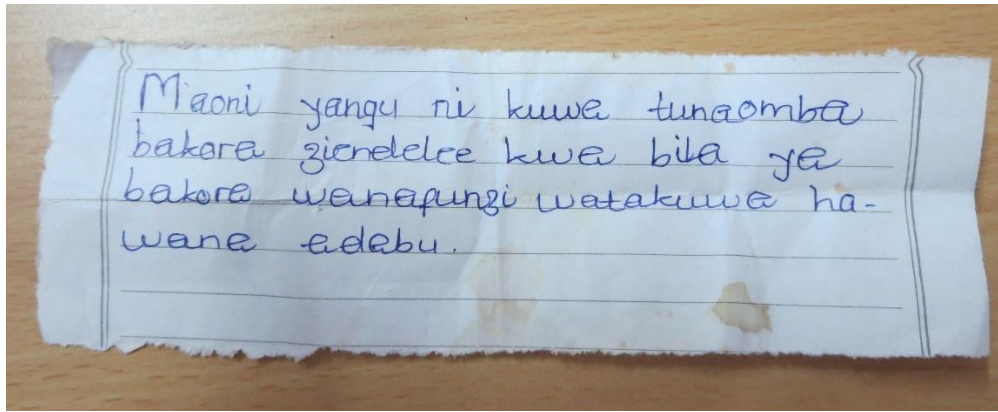 Maoni yangu ni kuwa tunaomba
bakora ziendelee kwa bila ya
bakora wanafunzi watakuwa ha-
wana adabu.